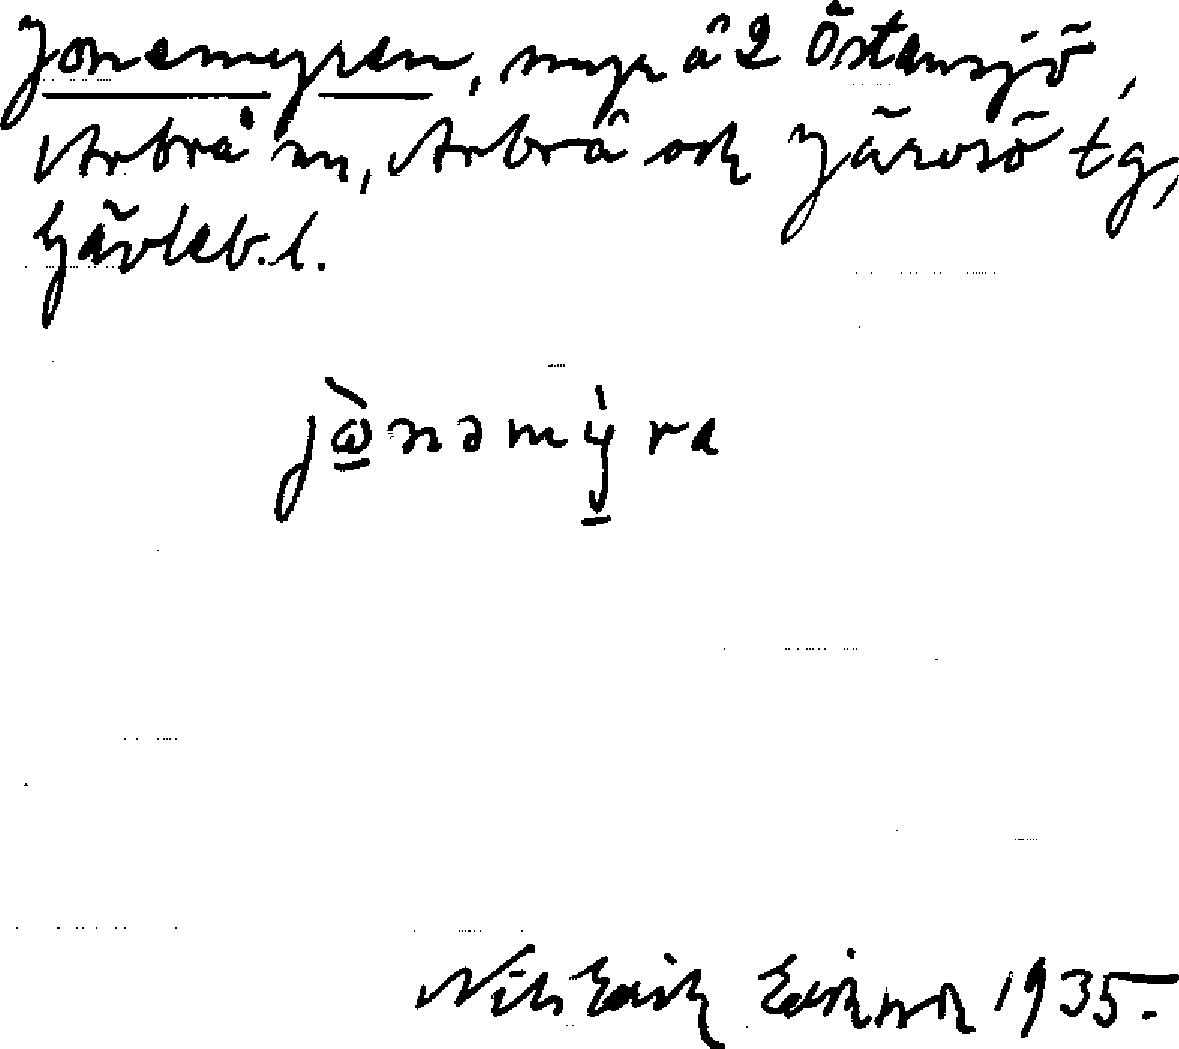 Jonemyren, myr å 2 Östansjö,
Arbrå sn, Arbrå och Järvsö tg,
Gävleb. l.
jɷ̀nəmỳra
Nils Erik Eriksson 1935.